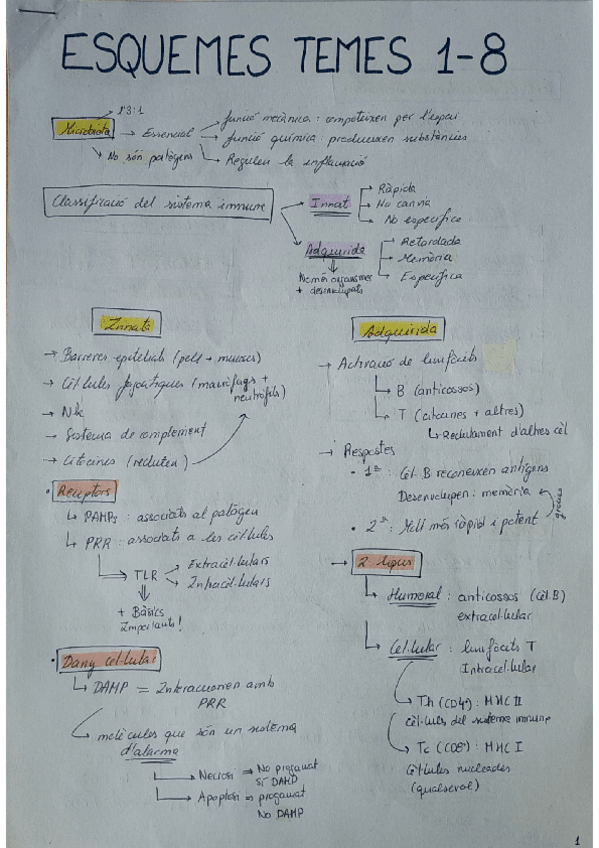 ESQUEMES TEMES 1-8
1'3:1
Microbiota → Essencial → funció mecànica: competeixen per l'espai
→ funció química: produeixen substàncies
→ Regulen la inflamació
→ No són patògens
Classificació del sistema immune → Innat → Ràpida
→ No canvia
→ No específica
→ Adquirida → Retardada
→ Memòria
→ Específica
Només organismes
+ desenvolupats
Innata
→ Barreres epitelials (pell + mucoses)
→ Cèl·lules fagocítiques (macròfags +
neutròfils)
→ NK
→ Sistema de complement
→ Citocines (recluten)
• Receptors
↳ PAMPs: associats al patògen
↳ PRR: associats a les cèl·lules
→ TLR → Extracel·lulars
→ Intracel·lulars
+ Bàsics
Importants!
• Dany cel·lular
↳ DAMP = Interaccionen amb
PRR
molècules que són un sistema
d'alarma
→ Necrosi ⇒ No programat
SÍ DAMP
→ Apoptosi = programat
No DAMP
Adquirida
→ Activació de limfòcits
↳ B (anticossos)
↳ T (citocines + altres)
↳ Reclutament d'altres cèl
→ Respostes
• 1ª: Cèl. B reconeixen antígens
Desenvolupen: memòria
• 2ª: Molt més ràpid i potent
gràcies
→ 2 tipus
↳ Humoral: anticossos (cèl.B)
extracel·lular
↳ Cel·lular: limfòcits T
Intracel·lular
→ Th (CD4+): MHC II
cèl·lules del sistema immune
→ Tc (CD8+): MHC I
Cèl·lules nucleades
(qualsevol)
1